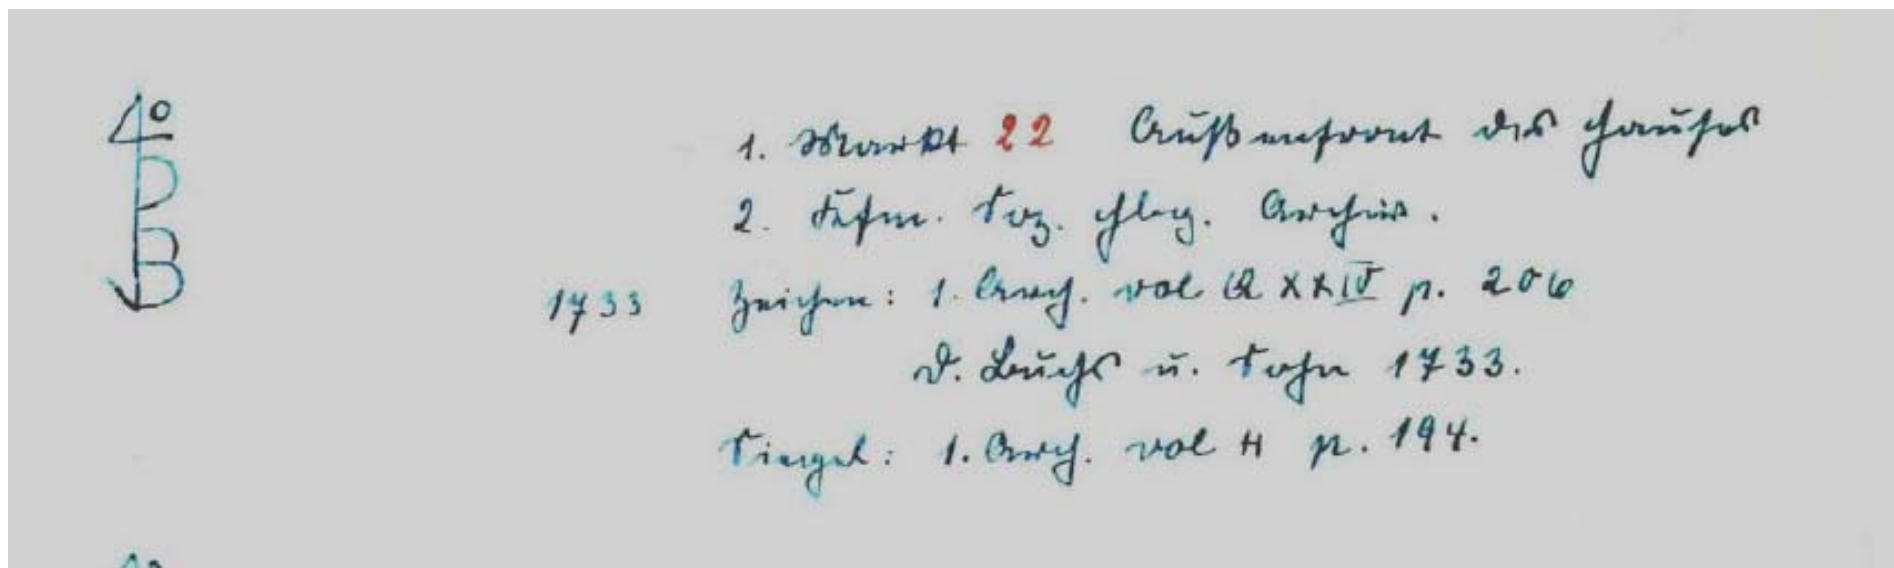 1. Markt 22 Außenfront des Hauses
2. Archiv.
1733 Zeichen: 1. Arch. vol Q XXIV p. 206
D. Buchs u. Sohn 1733.
Siegel: 1. Arch. vol H p. 194.